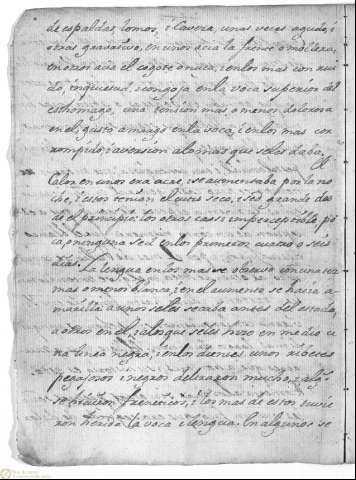 de espaldas, lomos, i Cavesa, unas veces agudo, i
otras gravativo, en unos acia la frente o mollera,
en otros acia el cogote o nuca, i en los mas con rui
do, inquietud, i congoja en la voca superior del
esthomago, una tension mas o menos dolorosa
en el, gusto amargo en la voca, i en los mas con
rompido i aversion alo mas que seles daba. El
Calor en unos era acre, i se aumentaba por la no
che, i estos tenian el cutis seco, i sed grande des
de el principio; los otros casi imperceptible, po
ca, o ninguna sed en los primeros cuatro o seis
dias.
La lengua en los mas se observo con una tez
mas o menos blanca, i en el aumento se hacia a
marilla: a unos seles secaba antes del estado,
a otros en el, alos que seles hizo en medio u
na linea negra, i en los dientes unos
pegajosos i negros deliraron mucho, i alg.s
se pusieron freneticos, i los mas de estos tuvie
ron herida la voca i lengua. En algunos se